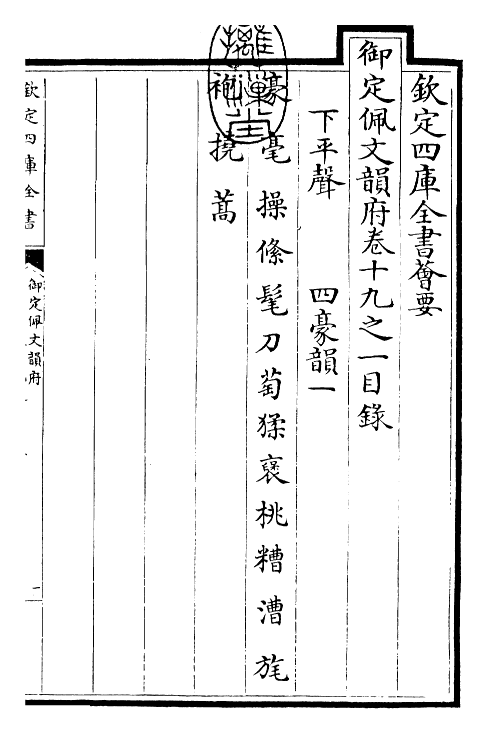 欽定四庫全書薈要
御定佩文韻府卷十九之一目錄
下平聲 四豪韻一
豪毫操絛髦刀萄猱褒桃糟漕旄
袍撓蒿
欽定四庫全書
御定佩文韻府
一